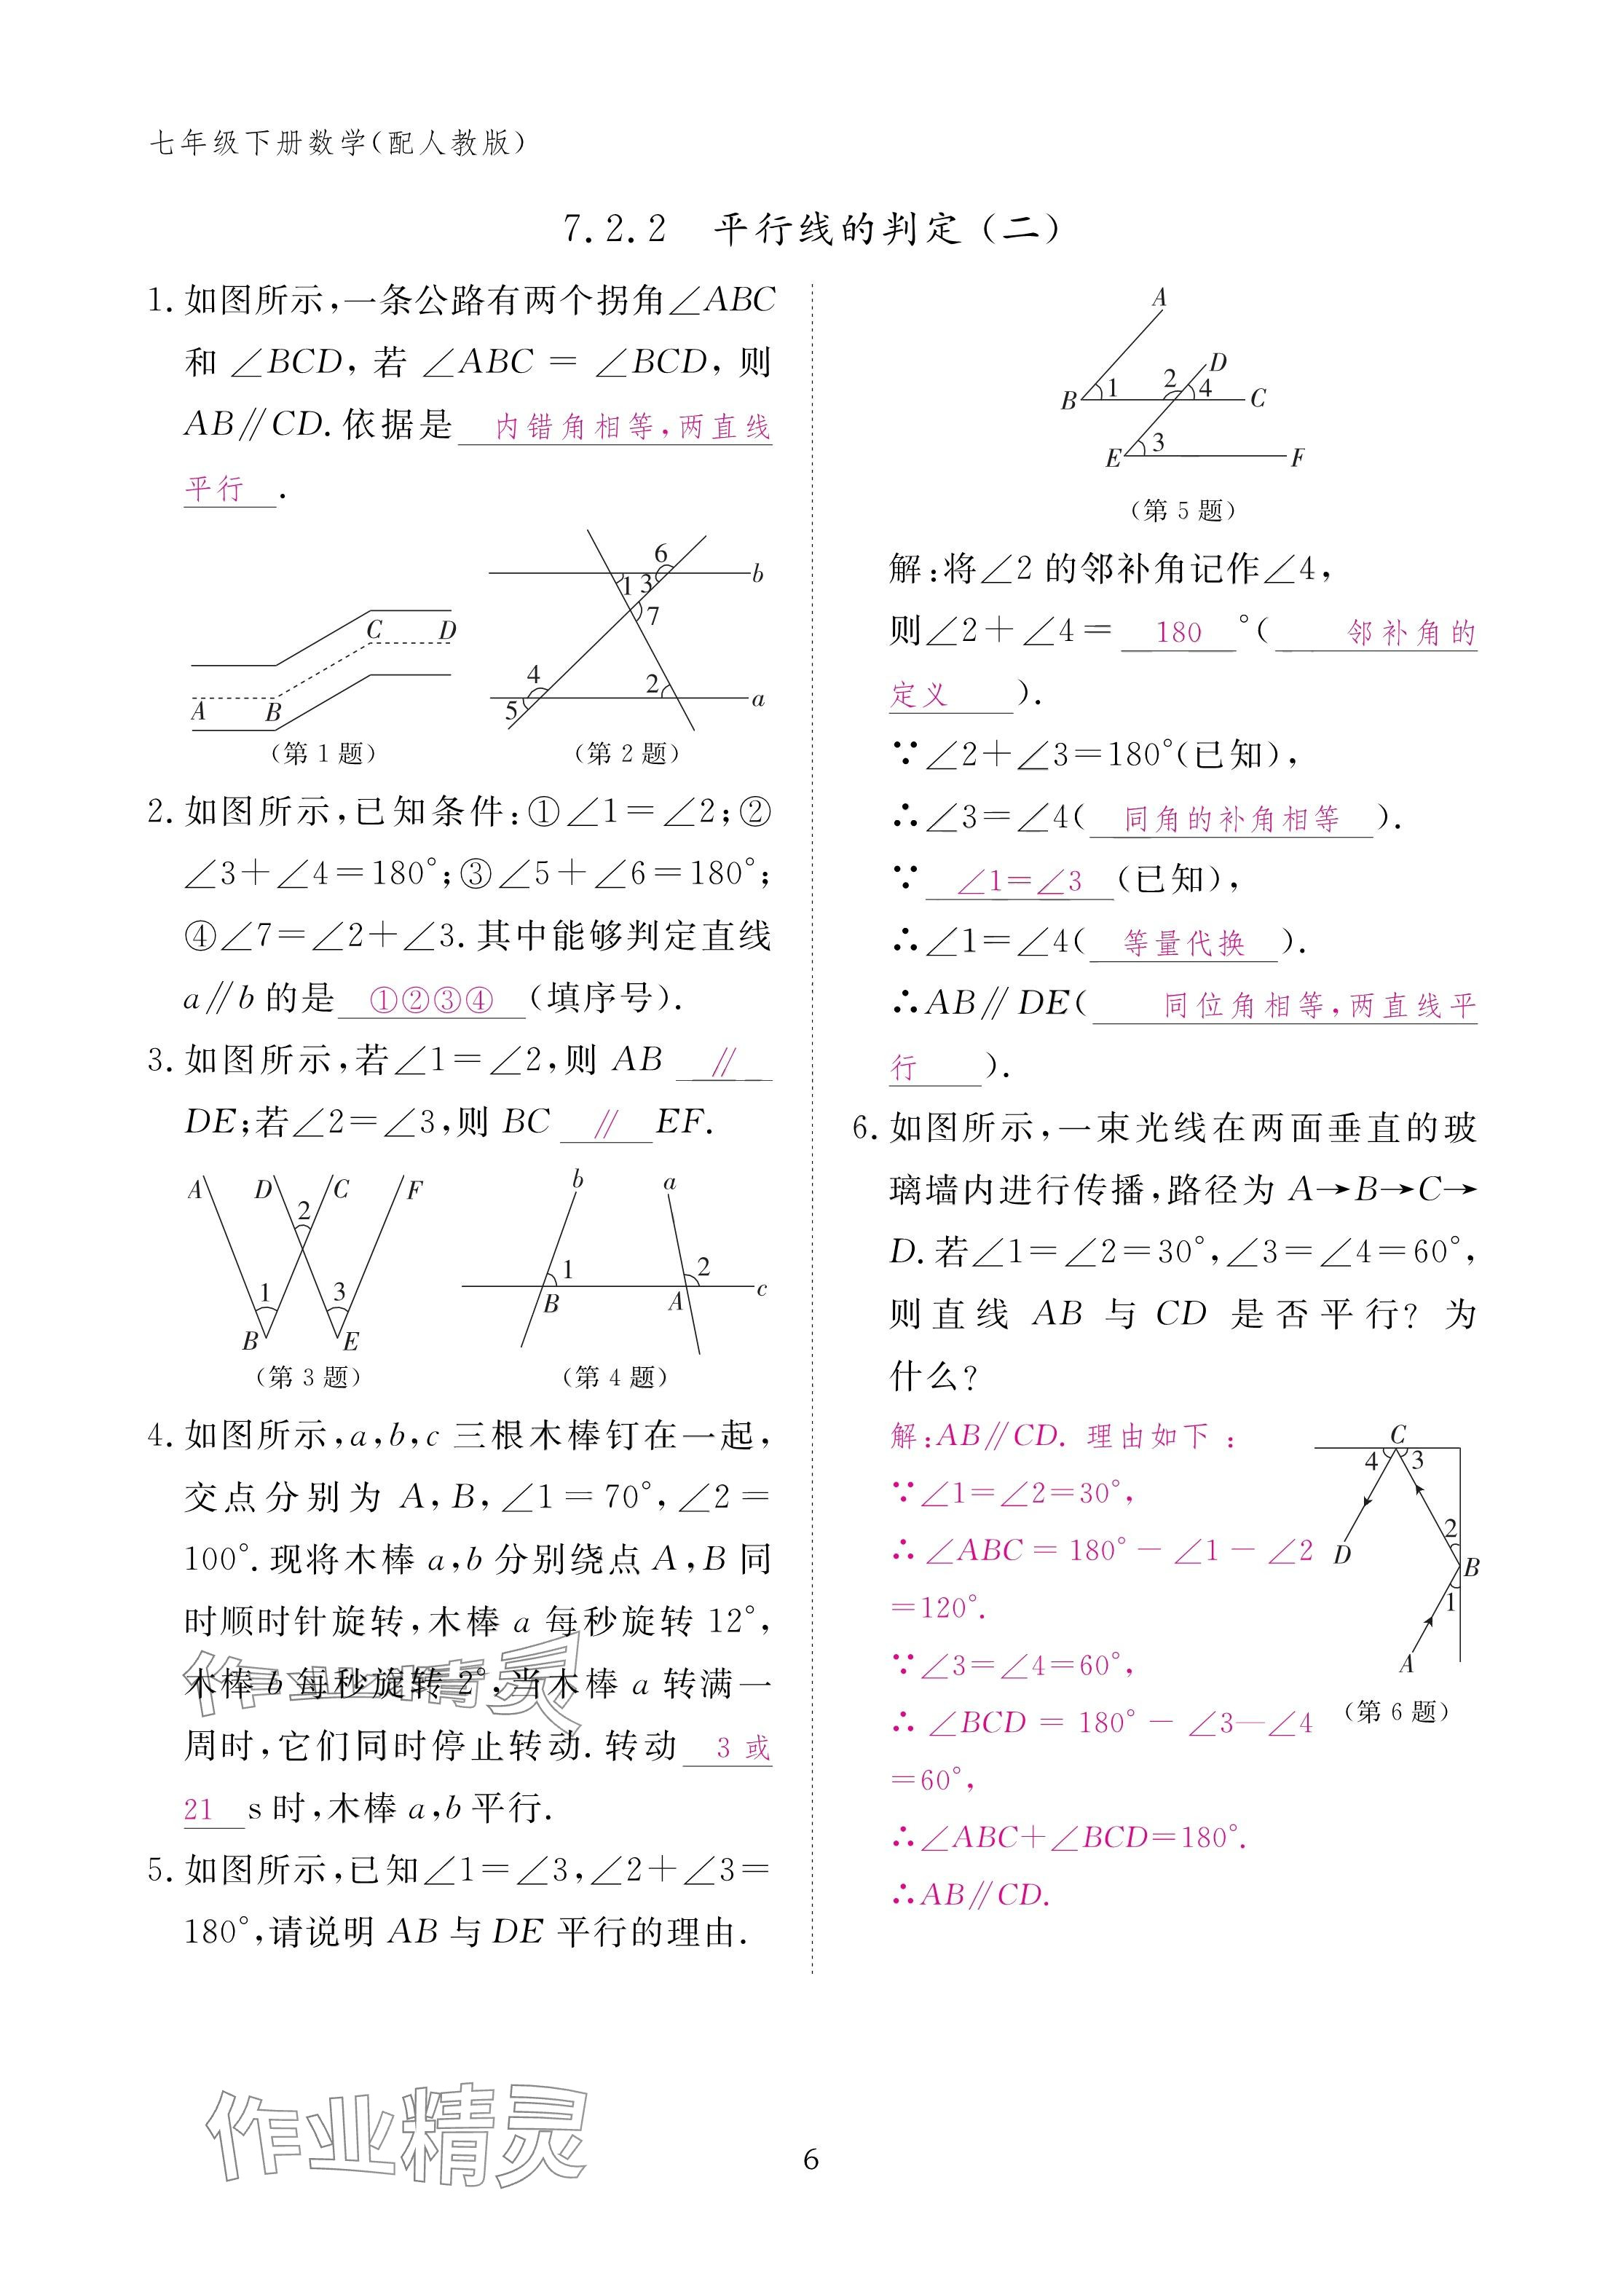 七年级下册数学(配人教版)
7.2.2 平行线的判定(二)
1. 如图所示,一条公路有两个拐角∠ABC
和∠BCD,若∠ABC=∠BCD,则
AB∥CD.依据是 内错角相等,两直线
平行 .
C D
A B
(第 1 题)
6
1 3 b
7
4 2
5 a
(第 2 题)
2. 如图所示,已知条件:①∠1=∠2;②
∠3+∠4=180°;③∠5+∠6=180°;
④∠7=∠2+∠3.其中能够判定直线
a∥b的是 ①②③④ (填序号).
3. 如图所示,若∠1=∠2,则 AB ∥
DE;若∠2=∠3,则 BC ∥ EF.
A D C F
2
1 3
B E
(第 3 题)
b a
1 2
B A c
(第 4 题)
4. 如图所示,a,b,c 三根木棒钉在一起,
交点分别为 A,B,∠1=70°,∠2=
100°.现将木棒 a,b 分别绕点 A,B 同
时顺时针旋转,木棒 a 每秒旋转 12°,
木棒 b 每秒旋转 2°,当木棒 a 转满一
周时,它们同时停止转动.转动 3 或
21 s 时,木棒 a,b 平行.
5. 如图所示,已知∠1=∠3,∠2+∠3=
180°,请说明 AB 与 DE 平行的理由.
A
D
B 1 2 4 C
E 3 F
(第 5 题)
解:将∠2 的邻补角记作∠4,
则∠2+∠4= 180 °( 邻补角的
定义 ).
∵∠2+∠3=180°(已知),
∴∠3=∠4( 同角的补角相等 ).
∵ ∠1=∠3 (已知),
∴∠1=∠4( 等量代换 ).
∴AB∥DE( 同位角相等,两直线平
行 ).
6. 如图所示,一束光线在两面垂直的玻
璃墙内进行传播,路径为 A→B→C→
D.若∠1=∠2=30°,∠3=∠4=60°,
则直线 AB 与 CD 是否平行?为
什么?
解:AB∥CD. 理由如下:
∵∠1=∠2=30°,
∴∠ABC=180°-∠1-∠2
=120°.
∵∠3=∠4=60°,
∴∠BCD=180°-∠3—∠4
=60°,
∴∠ABC+∠BCD=180°.
∴AB∥CD.
C
4 3
2
D B
1
A
(第 6 题)
作业精灵
作业精灵
6